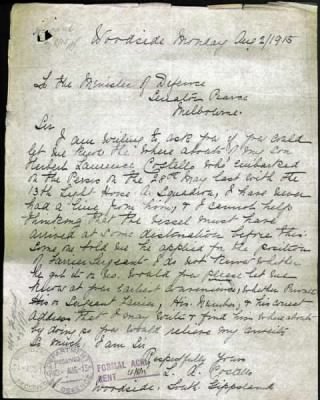 Woodside Monday Aug 2/1915
To the Minister of Defence
Senator Pearce
Melbourne.
Sir
I am writing to ask you if you could
let me know the where abouts of my Son
Herbert Laurence Costello who embarked
on the Persic on the 28th May last with the
13th Light Horse A. Squadron, I have never
had a line from him, & I cannot help
thinking that the vessel must have
arrived at some destination before this
Some one told me he applied for the position
of Farrier Sergeant I do not know whether
he got it or no. Would you please let me
know at your Earliest Convenience, whether Private
or Sergent Farrier, His Number, & his correct
Address that I may write & find his where abouts
by doing so you would relieve my anxiety
so much. I am Sir
Respectfully Yours
L. A. Costello
Woodside. South Gippsland
FORMAL ACK
SENT
DEPARTMENT
AUG 15